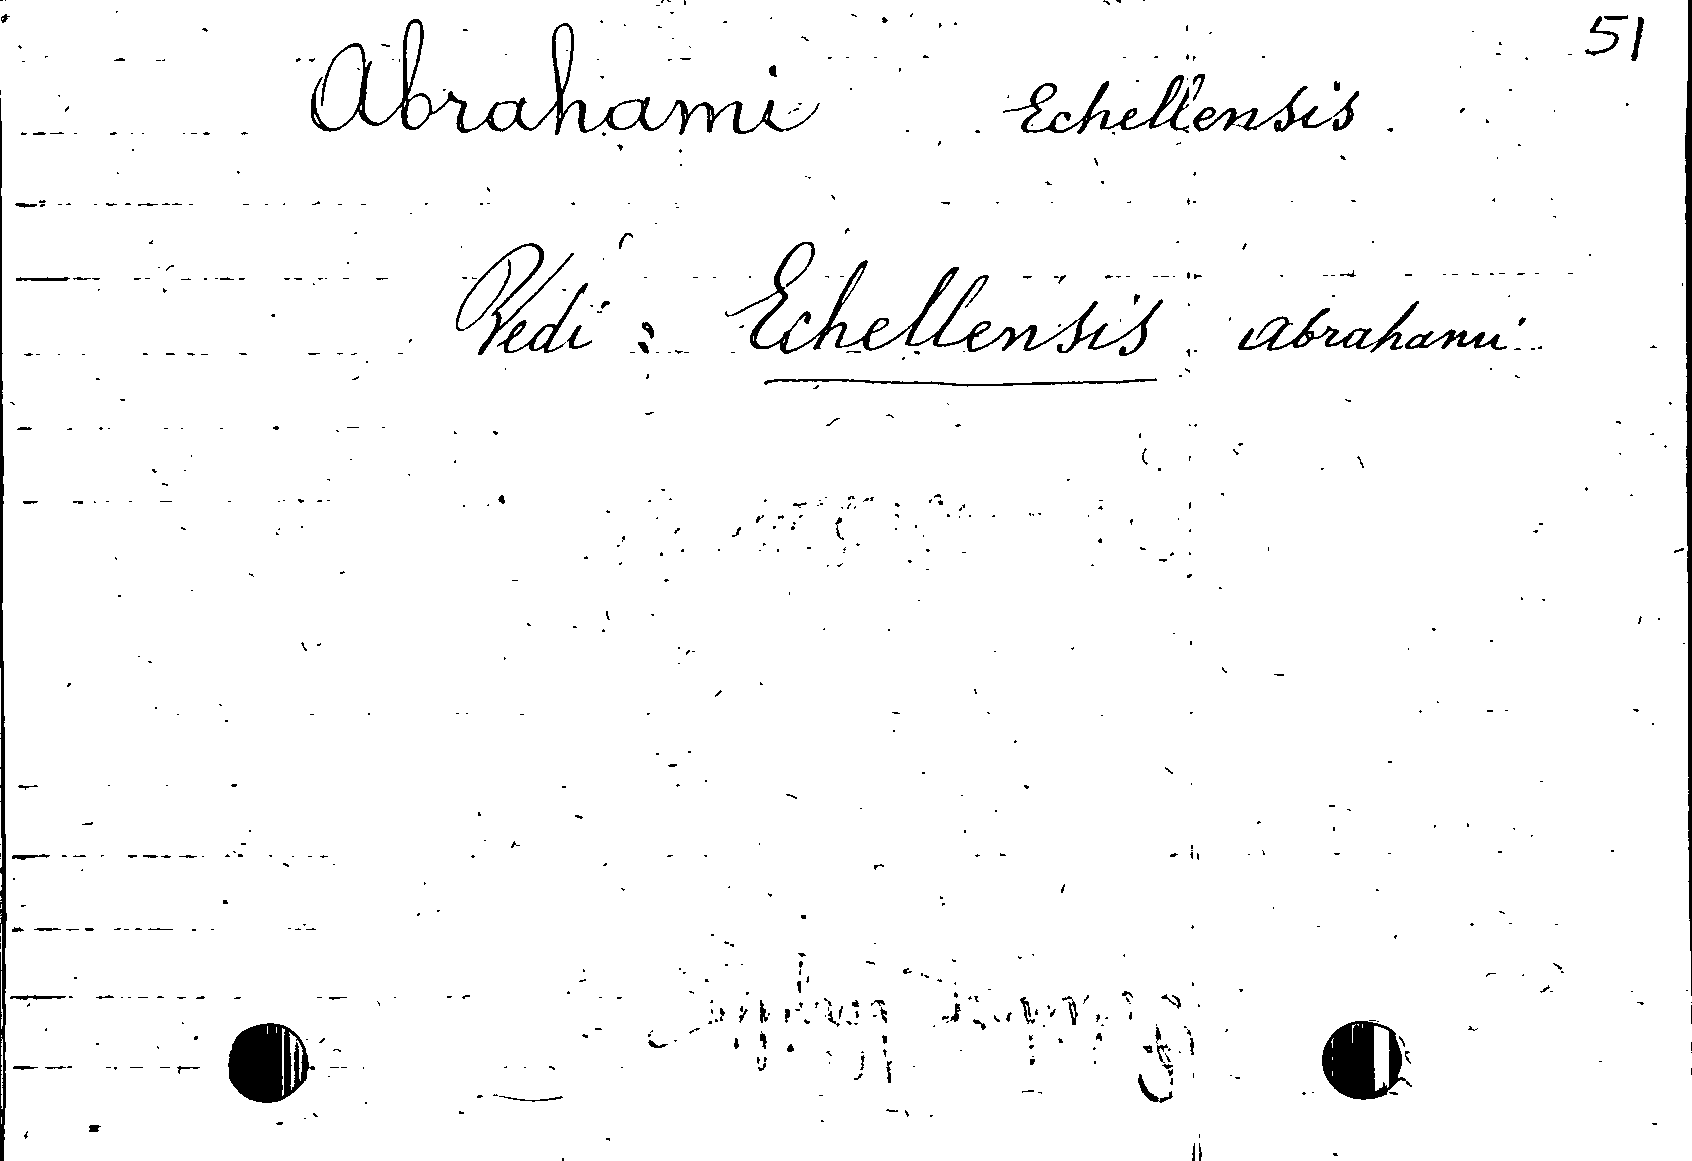 51
Abrahami Echellensis.
Vedi: Echellensis Abrahami